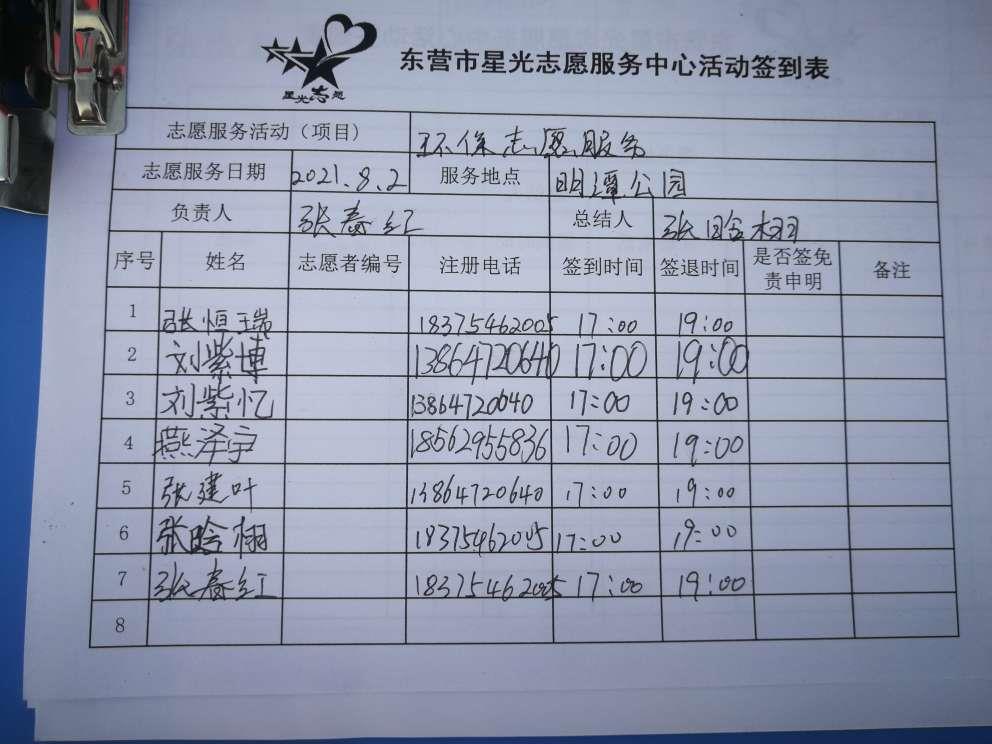 星光志愿
东营市星光志愿服务中心活动签到表
志愿服务活动（项目） 环保志愿服务
志愿服务日期 2021.8.2 服务地点 明潭公园
负责人 张春红 总结人 张晗栩
序号 姓名 志愿者编号 注册电话 签到时间 签退时间 是否签免责申明 备注
1 张恒瑞 18375462005 17:00 19:00
2 刘紫博 13864720640 17:00 19:00
3 刘紫忆 13864720640 17:00 19:00
4 燕泽宇 18562955836 17:00 19:00
5 张建叶 13864720640 17:00 19:00
6 张晗栩 18375462005 17:00 19:00
7 张春红 18375462005 17:00 19:00
8